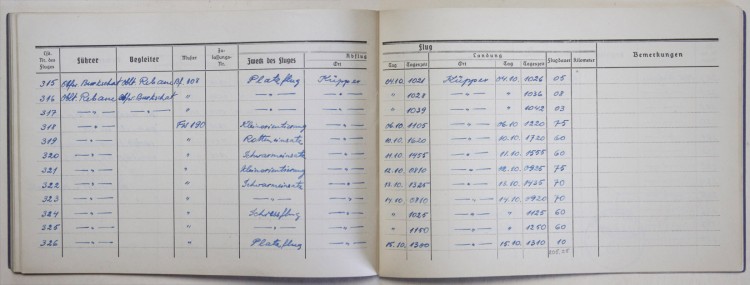 Flug
Lfd. Nr. des Fluges Führer Begleiter Muster Zu-lassungs-Nr. Zweck des Fluges Abflug Ort Tag Tageszeit Landung Ort Tag Tageszeit Flugdauer Kilometer Bemerkungen
315 Bf. 108 Platzflug Küpper 04.10. 1021 Küpper 04.10. 1026 05
316 " —"— —"— " 1028 —"— " 1036 08
317 —"— —"— " —"— —"— " 1039 —"— " 1042 03
318 —"— FW 190 —"— 06.10. 1105 —"— 06.10. 1220 75
319 —"— " Rotteneinsatz —"— 10.10. 1620 —"— 10.10. 1720 60
320 —"— " Schwarmeinsatz —"— 11.10. 1455 —"— 11.10. 1555 60
321 —"— " —"— 12.10. 0810 —"— 12.10. 0925 75
322 —"— " Schwarmeinsatz —"— 13.10. 1325 —"— 13.10. 1435 70
323 —"— " —"— —"— 14.10. 0810 —"— 14.10. 0920 70
324 —"— " —"— " 1025 —"— " 1125 60
325 —"— " —"— —"— " 1150 —"— " 1250 60
326 —"— " Platzflug —"— 15.10. 1300 —"— 15.10. 1310 10